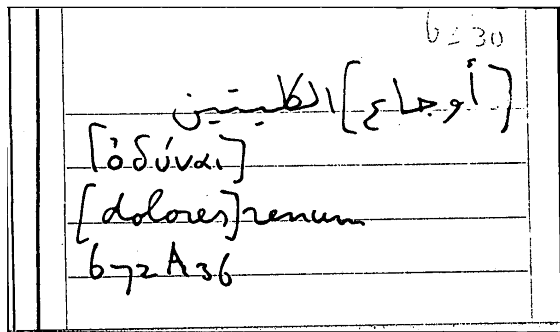 6 = 30
[أوجاع] الكليتين
[ὀδύναι]
[dolores] renum
672 A36